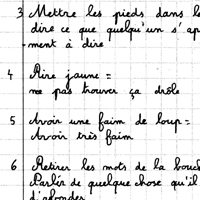 3 Mettre les pieds dans le
dire ce que quelqu'un s'ap
-ment à dire
4 Rire jaune =
ne pas trouver ça drôle
5 Avoir une faim de loup =
Avoir très faim
6 Retirer les mots de la bouch
Parler de quelque chose qu'il
d'abonder